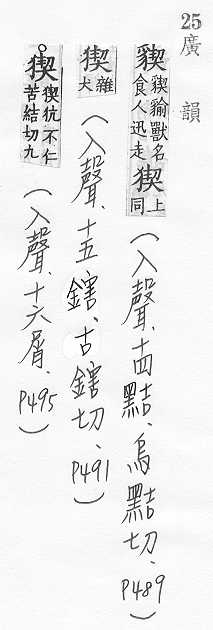 25
廣韻
貏貏貐獸名食人迅走猰上同(入聲、十四黠、烏黠切、P489)
猰雜犬(入聲、十五鎋、古鎋切、P491)
猰猰犺不仁苦結切九(入聲、十六屑、P495)